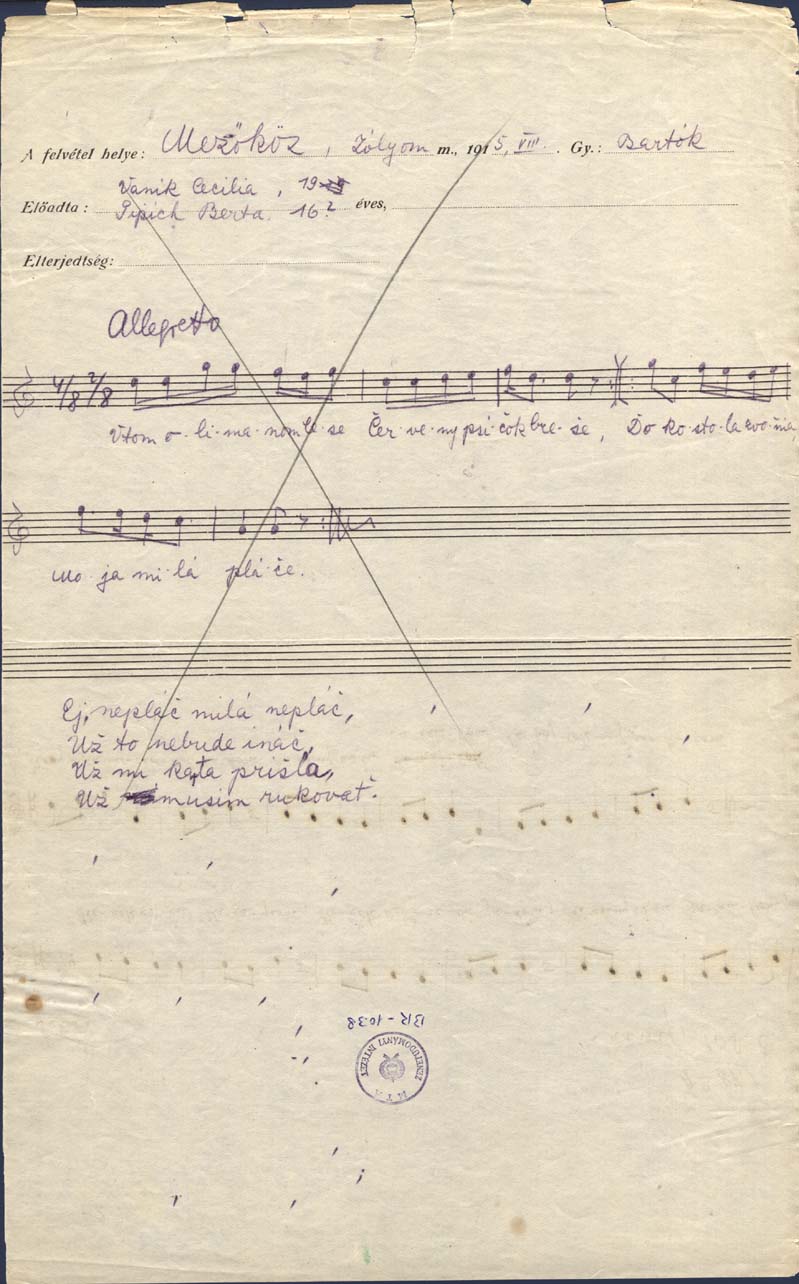 A felvétel helye: Mezőköz, Zólyom m., 1915, VIII. Gy.: Bartók
Vanik Cecilia, 19
Előadta: Pipich Berta. 16? éves,
Elterjedtség:
Allegretto
4/8 2/8
V tom o-li-ma-nom le-se Čer-ve-ny psí-čok bre-še, Do ko-sto-la zvo-ňa,
Mo-ja mi-lá plá-če.
Ej, neplač milá nepláč,
Už to nebude ináč,
Už mi karta prišla,
Už musím rukovať.
BR-1038
ZENETUDOMÁNYI INTÉZET
MTA